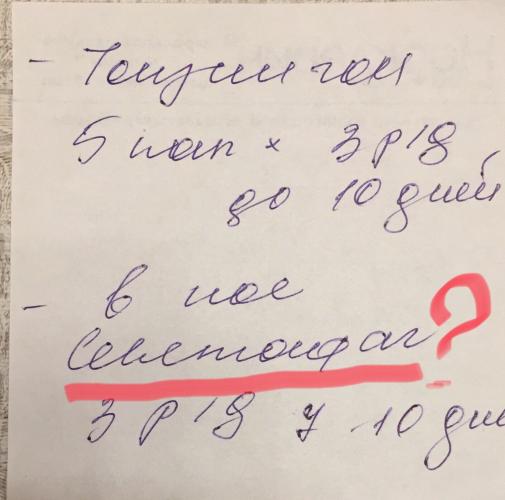 - Тонзилгон
5 кап x 3 р/д
до 10 дней
- в нос
?
3 р/д 7-10 дне